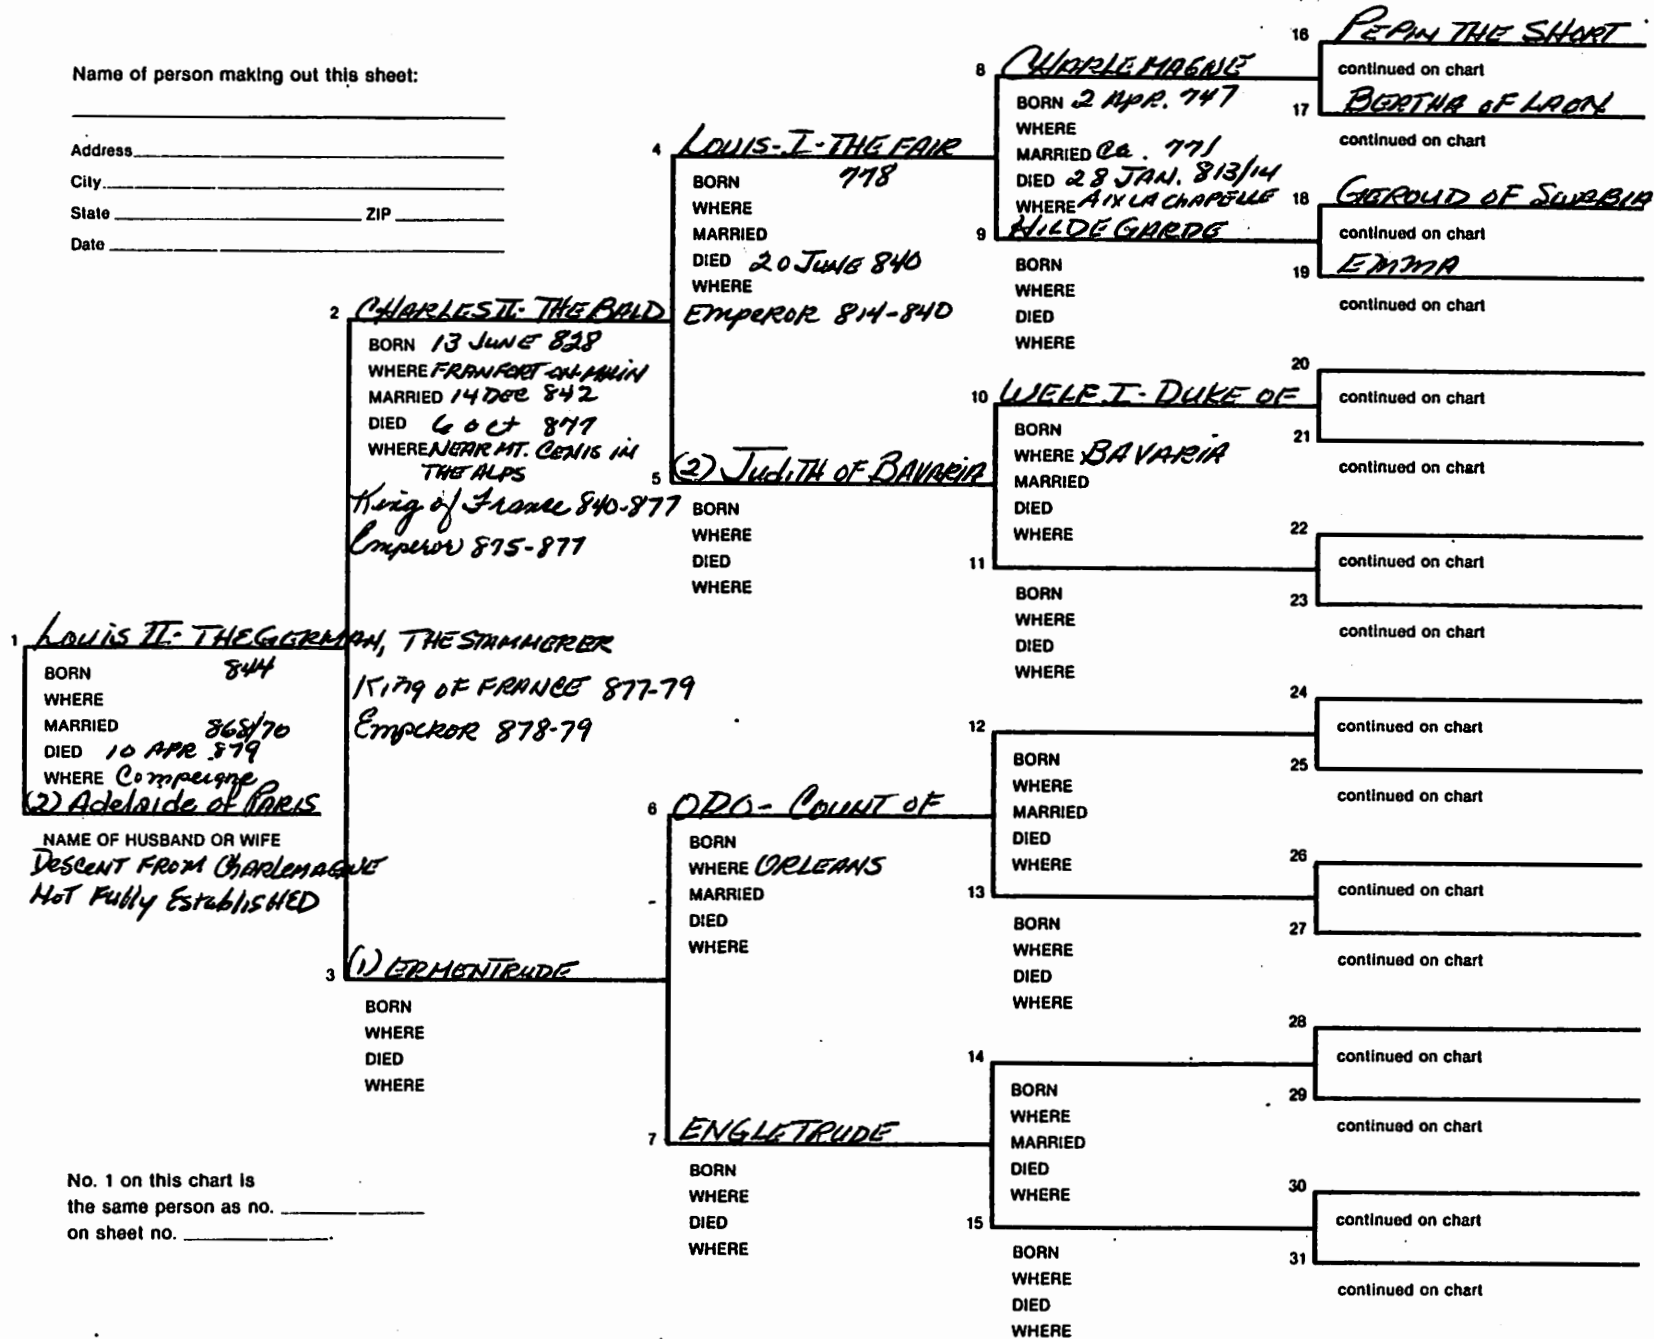 Name of person making out this sheet:
Address
City
State ZIP
Date
1 LOUIS II - THE GERMAN, THE STAMMERER
BORN 844
WHERE
MARRIED 868/70
DIED 10 APR 879
WHERE Compeigne
(2) Adelaide of PARIS
NAME OF HUSBAND OR WIFE
DESCENT FROM CHARLEMAGNE
NOT Fully EstablisHED
King OF FRANCE 877-79
EMPEROR 878-79
No. 1 on this chart is
the same person as no.
on sheet no. .
2 CHARLES II - THE BALD
BORN 13 JUNE 828
WHERE FRANFORT-ON-MAIN
MARRIED 14 DEC 842
DIED 6 Oct 877
WHERE NEAR MT. CENIS IN
THE ALPS
King of France 840-877
Emperor 875-877
3 (1) ERMENTRUDE
BORN
WHERE
DIED
WHERE
4 LOUIS-I-THE FAIR
BORN 778
WHERE
MARRIED
DIED 20 JUNE 840
WHERE
EMPEROR 814-840
5 (2) JUDITH OF BAVARIA
BORN
WHERE
DIED
WHERE
6 ODO - COUNT OF
BORN
WHERE ORLEANS
MARRIED
DIED
WHERE
7 ENGLETRUDE
BORN
WHERE
DIED
WHERE
8 CHARLEMAGNE
BORN 2 APR. 747
WHERE
MARRIED Ca. 771
DIED 28 JAN. 813/14
WHERE AIX LA CHAPELLE
9 HILDEGARDE
BORN
WHERE
DIED
WHERE
10 WELF I - DUKE OF
BORN
WHERE BAVARIA
MARRIED
DIED
WHERE
11
BORN
WHERE
DIED
WHERE
12
BORN
WHERE
MARRIED
DIED
WHERE
13
BORN
WHERE
DIED
WHERE
14
BORN
WHERE
MARRIED
DIED
WHERE
15
BORN
WHERE
DIED
WHERE
16 PEPIN THE SHORT
continued on chart
17 BERTHA OF LAON
continued on chart
18 GEROUD OF SWABIA
continued on chart
19 EMMA
continued on chart
20
continued on chart
21
continued on chart
22
continued on chart
23
continued on chart
24
continued on chart
25
continued on chart
26
continued on chart
27
continued on chart
28
continued on chart
29
continued on chart
30
continued on chart
31
continued on chart